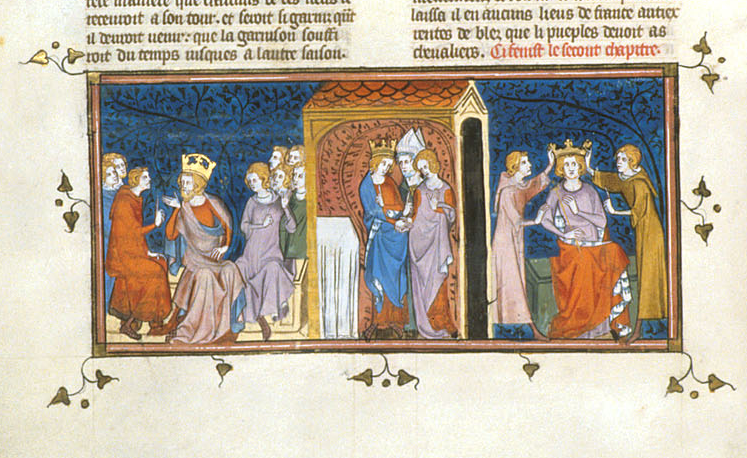 receuoit a son tour. et seroit si garni qͥt
il deuroit uenir: que la garnison souffi
roit du temps iusques a lautre saison.
laissa il en aucuns lieus de france
rentes de blez que li pueples deuoit as
cheualiers. Ci fenist le secont chapitre.